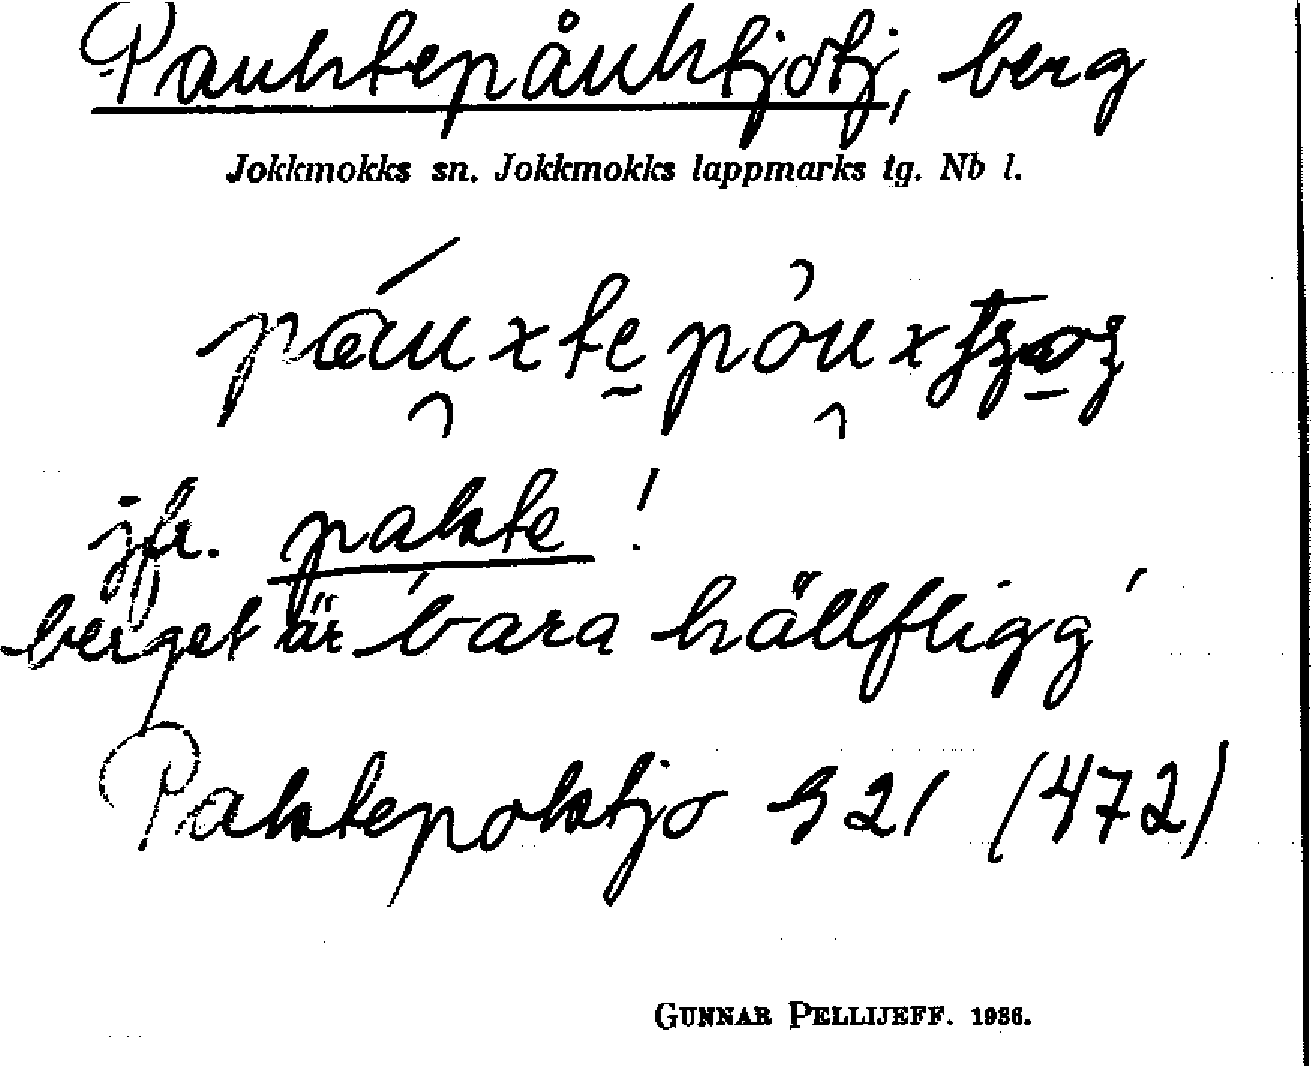 Pauktepåuktjåtj, berg
Jokkmokks sn. Jokkmokks lappmarks tg. Nb l.
jfr. pakte!
berget är 'bara hällfligg'
Paktepoktjo S 21 (472)
GUNNAR PELLIJEFF. 1936.